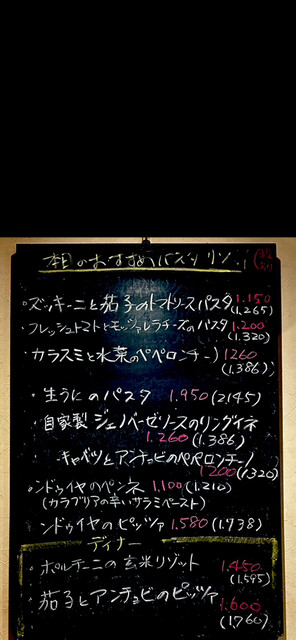 本日のおすすめパスタ リゾット
・ズッキーニと茄子のトマトソースパスタ 1.150
(1.265)
・フレッシュトマトとモッツァレラチーズのパスタ 1.200
(1.320)
・カラスミと水菜のペペロンチーノ 1260
(1.386)
・生うにのパスタ 1.950 (2145)
・自家製ジェノベーゼソースのリングイネ
1.260 (1.386)
・キャベツとアンチョビのペペロンチーノ
1200 (1.320)
・ンドゥイヤのペンネ 1.100 (1.210)
(カラブリアの辛いサラミペースト)
ンドゥイヤのピッツァ 1.580 (1.738)
ディナー
・ポルチーニの玄米リゾット 1.450
(1.595)
・茄子とアンチョビのピッツァ 1.600
(1.760)